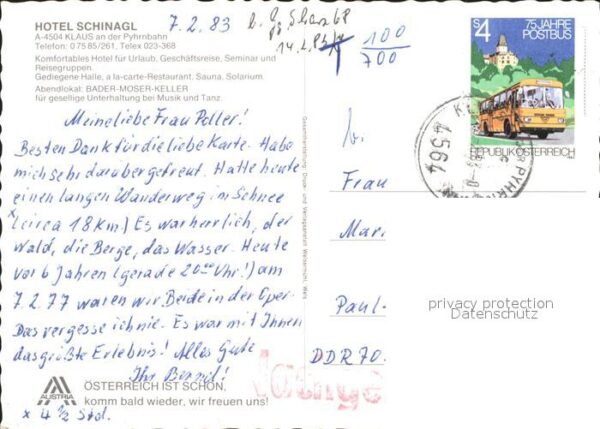 HOTEL SCHINAGL
A-4504 KLAUS an der Pyhrnbahn
Telefon: 0 75 85/261, Telex 023-368
Komfortables Hotel für Urlaub, Geschäftsreise, Seminar und
Reisegruppen.
Gediegene Halle, a la-carte-Restaurant, Sauna, Solarium.
Abendlokal: BADER-MOSER-KELLER
für gesellige Unterhaltung bei Musik und Tanz.
7.2.83
Meine liebe Frau Peller!
Besten Dank für die liebe Karte. Habe
mich sehr darüber gefreut. Hatte heute
einen langen Wanderweg im Schnee
x(circa 18 km.) Es war herrlich, der
Wald, die Berge, das Wasser. Heute
vor 6 Jahren (gerade 20 00 Uhr!) am
7.2.77 waren wir Beide in der Oper.
Das vergesse ich nie. Es war mit Ihnen
das größte Erlebnis! Alles Gute
Ihr
AUSTRIA
ÖSTERREICH IST SCHÖN,
komm bald wieder, wir freuen uns!
x 4 1/2 Std.
T 100
700
S4
75 JAHRE
POSTBUS
REPUBLIK ÖSTERREICH
4564
Frau
Mari
Paul-
DDR 70.
privacy protection
Datenschutz